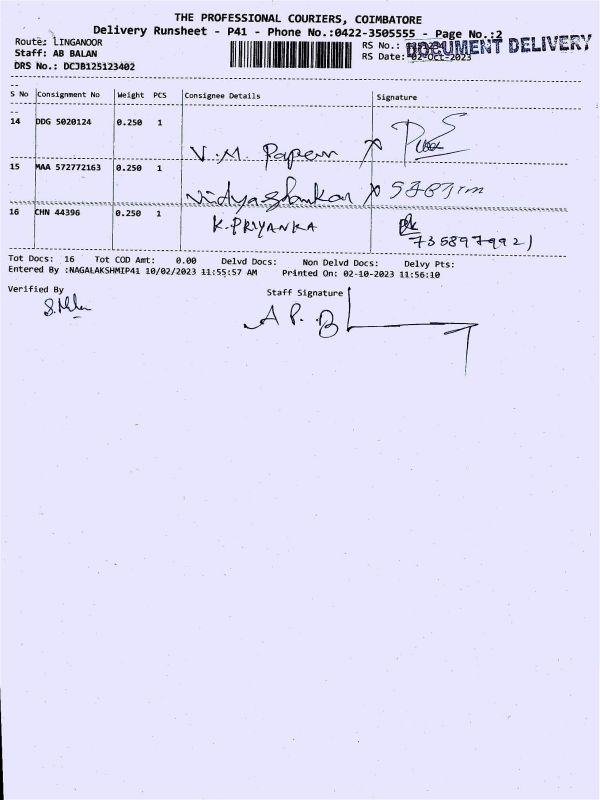 THE PROFESSIONAL COURIERS, COIMBATORE
Delivery Runsheet - P41 - Phone No.:0422-3505555 - Page No.:2
Route: LINGANOOR
RS No.:
DOCUMENT DELIVERY
Staff: AB BALAN
RS Date: 02-Oct-2023
DRS No.: DCJB125123402
S No Consignment No Weight PCS Consignee Details Signature
14 DDG 5020124 0.250 1
V.M.
15 MAA 572772163 0.250 1
16 CHN 44396 0.250 1 K.PRIYANKA
7358979921
Tot Docs: 16 Tot COD Amt: 0.00 Delvd Docs: Non Delvd Docs: Delvy Pts:
Entered By :NAGALAKSHMIP41 10/02/2023 11:55:57 AM Printed On: 02-10-2023 11:56:10
Verified By
Staff Signature
A P. B